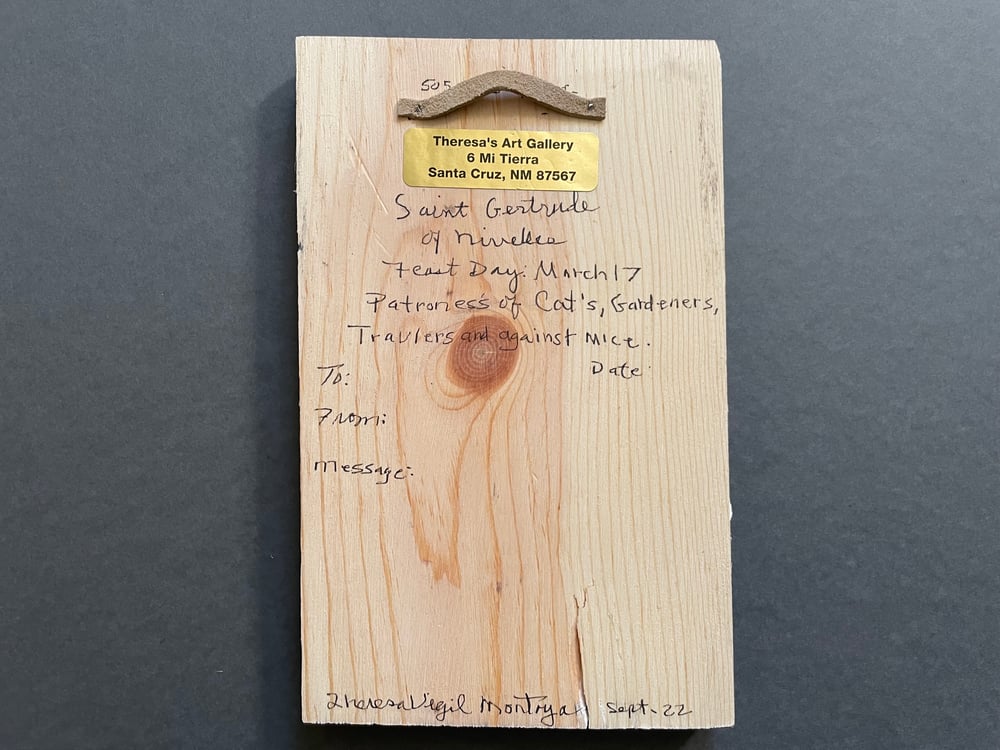 505
Theresa's Art Gallery
6 Mi Tierra
Santa Cruz, NM 87567
Saint Gertrude
of Nivelles
Feast Day: March 17
Patroness of Cat's, Gardeners,
Travlers and against Mice.
To: Date:
From:
Message:
Theresa Vigil Montoya Sept. 22